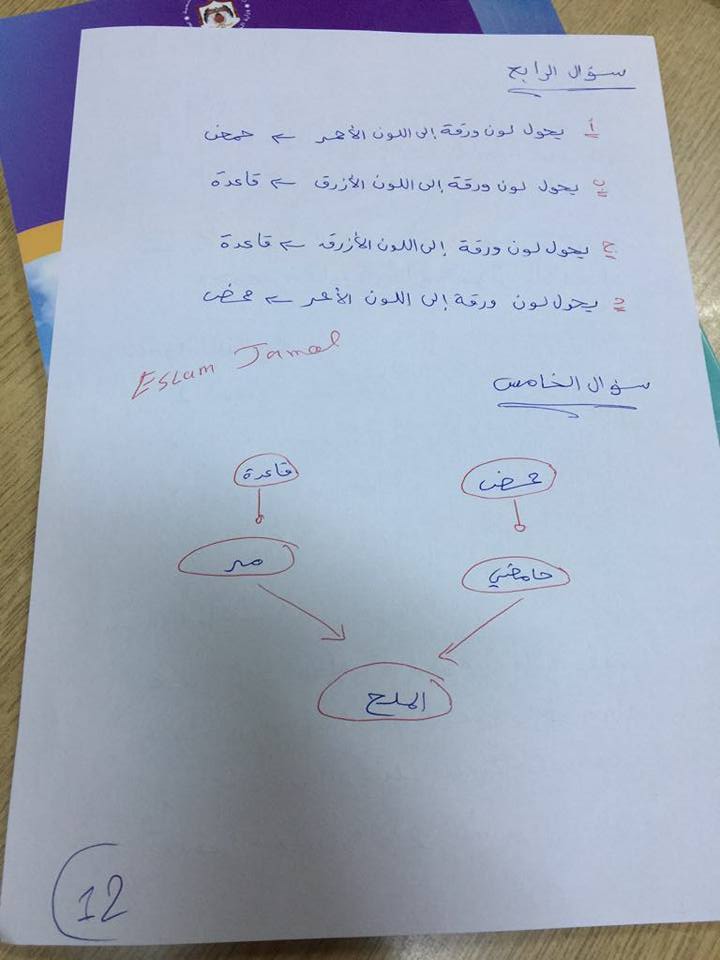 سؤال الرابع
أ يحول لون ورقة إلى اللون الأحمر ← حمض
ب يحول لون ورقة إلى اللون الأزرق ← قاعدة
ج يحول لون ورقة إلى اللون الأزرق ← قاعدة
د يحول لون ورقة إلى اللون الأحمر ← حمض
Eslam Jamal
سؤال الخامس
حمض قاعدة
حامضي مر
الملح
12